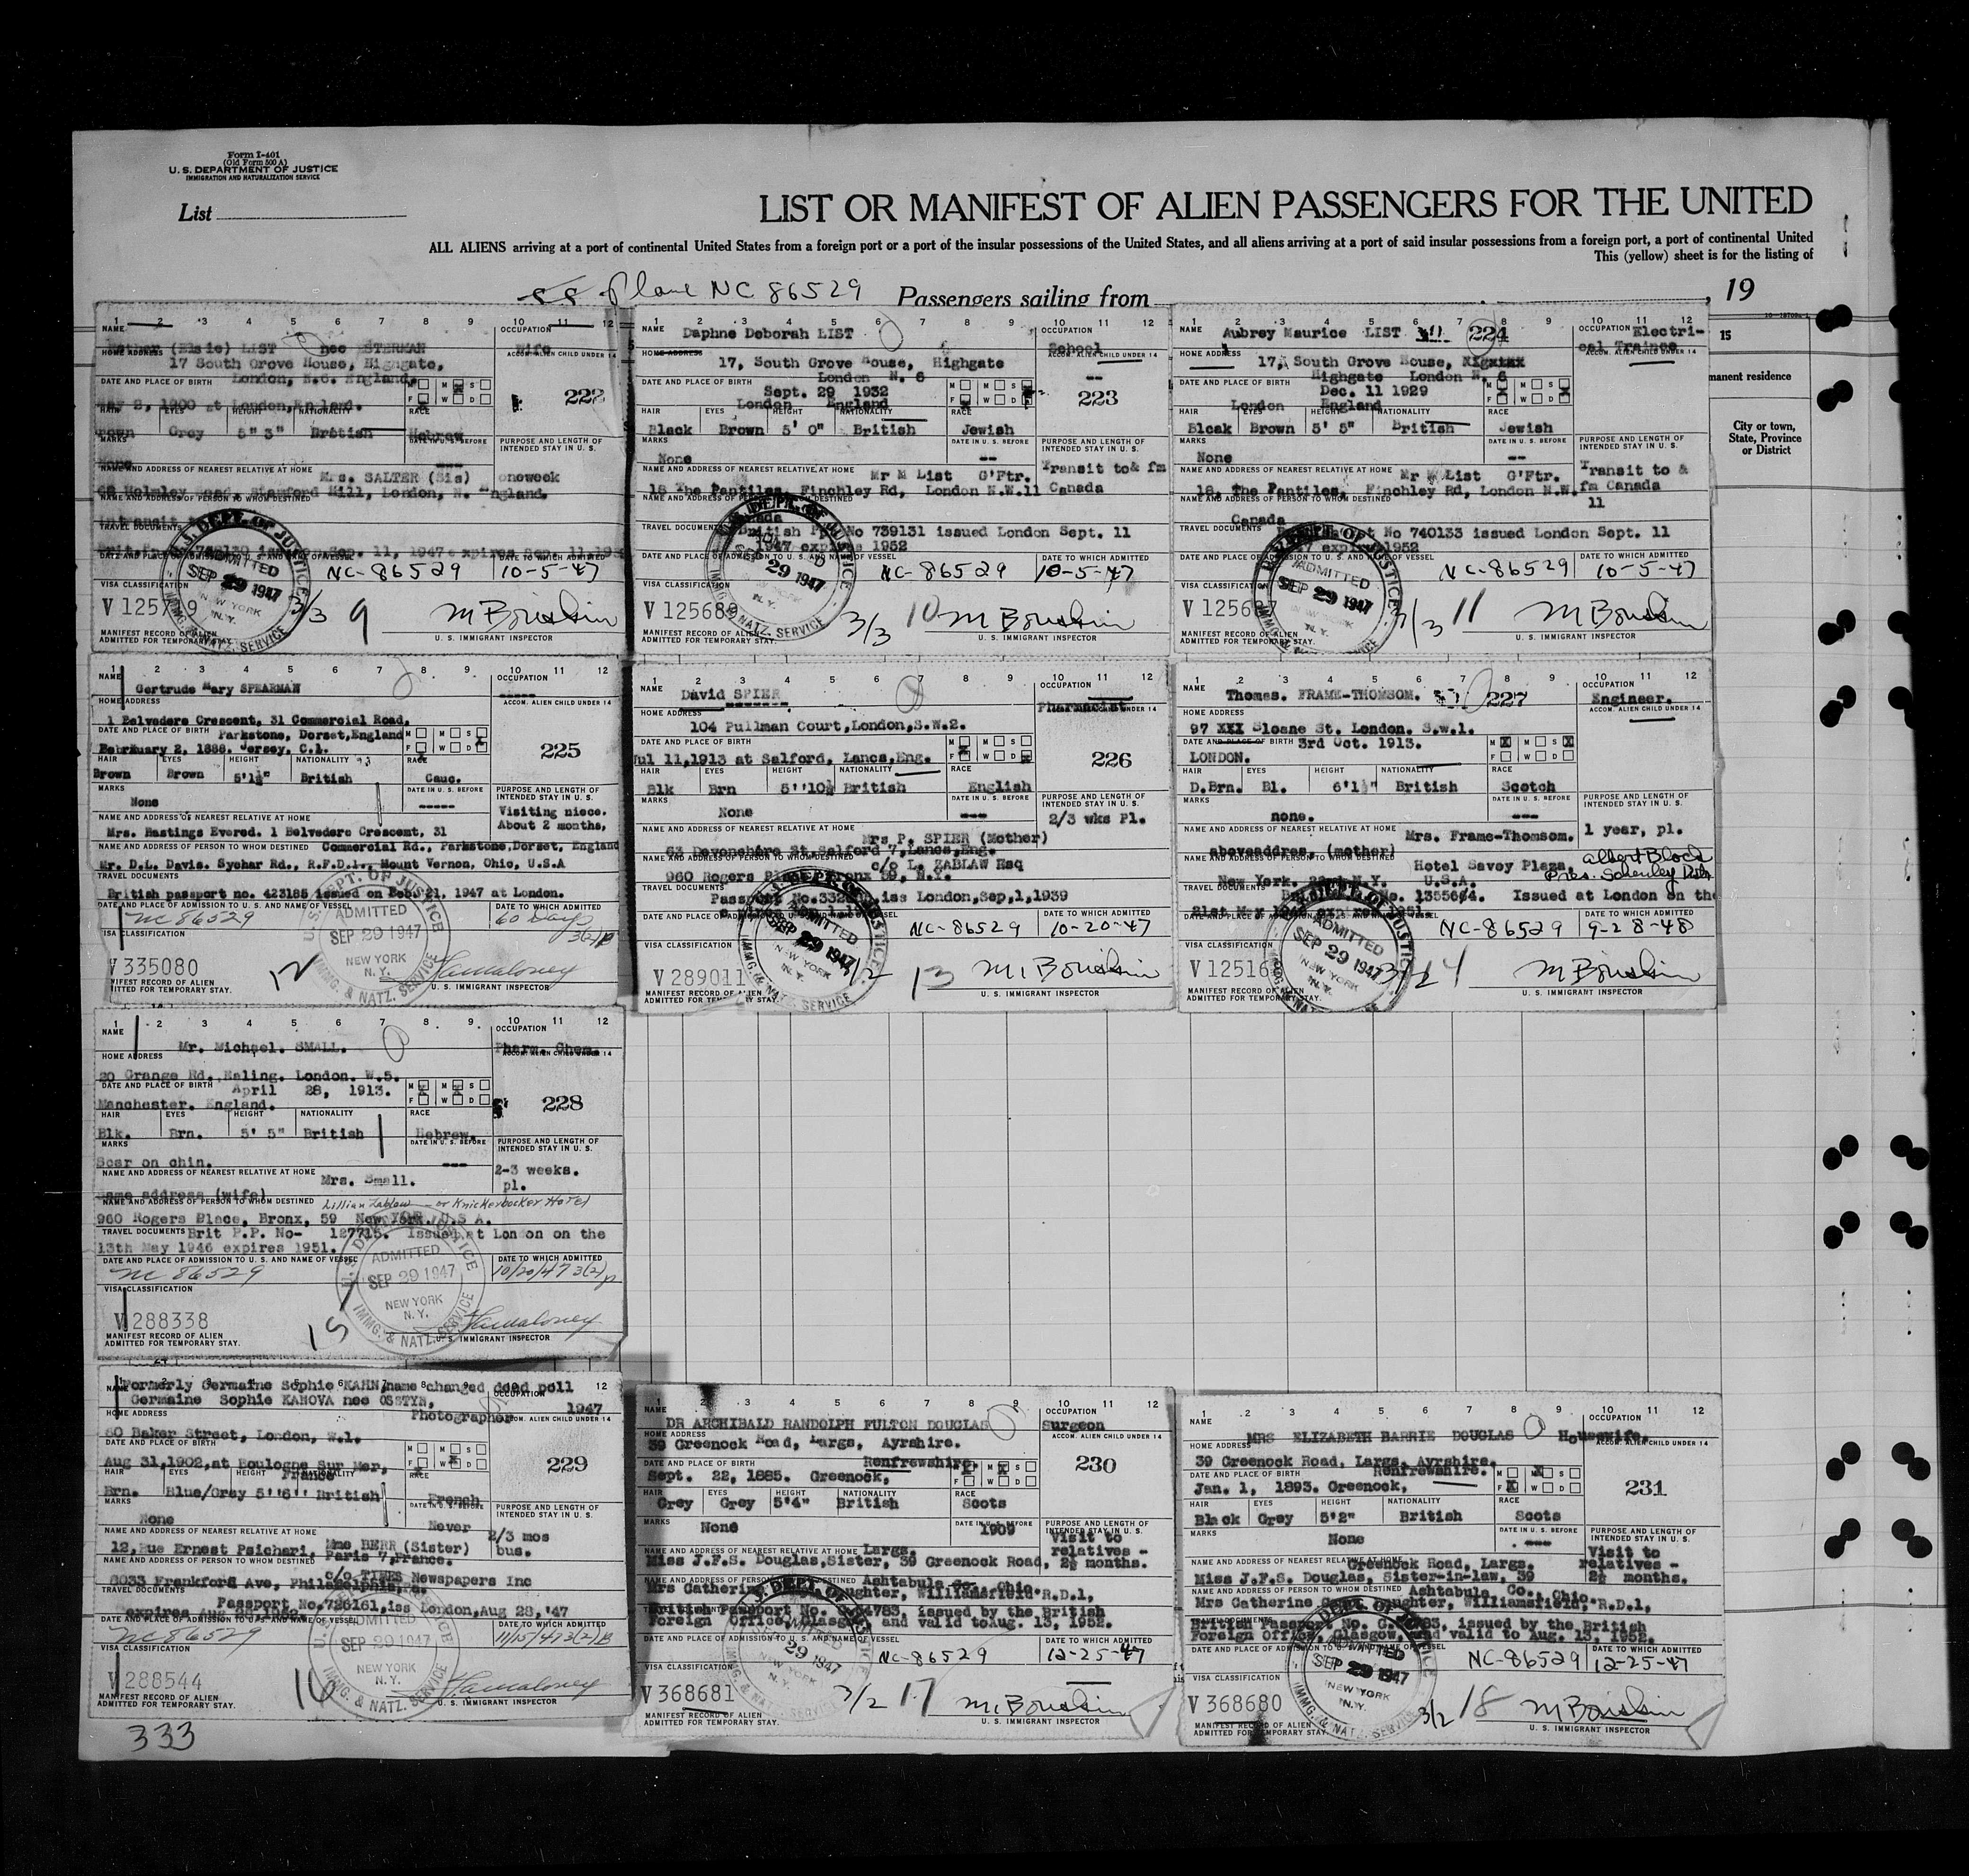 Form I-401
(Old Form 500 A)
U. S. DEPARTMENT OF JUSTICE
IMMIGRATION AND NATURALIZATION SERVICE
List
LIST OR MANIFEST OF ALIEN PASSENGERS FOR THE UNITED
ALL ALIENS arriving at a port of continental United States from a foreign port or a port of the insular possessions of the United States, and all aliens arriving at a port of said insular possessions from a foreign port, a port of continental United
This (yellow) sheet is for the listing of
SS Plane NC 86529 Passengers sailing from , 19
15
manent residence
City or town, State, Province or District
1 2 3 4 5 6 7 8 9 10 11 12
NAME OCCUPATION
(Elsie) LIST nee ESTERMAN Wife
HOME ADDRESS ACCOM. ALIEN CHILD UNDER 14
17 South Grove House, Highgate,
DATE AND PLACE OF BIRTH London, N.6. England.
M F M W S D
222
May 2, 1900 at London, England.
HAIR EYES HEIGHT NATIONALITY RACE
rown Grey 5" 3" British Hebrew
MARKS DATE IN U. S. BEFORE PURPOSE AND LENGTH OF INTENDED STAY IN U. S.
None
NAME AND ADDRESS OF NEAREST RELATIVE AT HOME
Mrs. SALTER (Sis) oneweek
London, N. England.
NAME AND ADDRESS OF PERSON TO WHOM DESTINED
TRAVEL DOCUMENTS
Sep. 11, 1947 expires Sep. 11,195
DATE AND PLACE OF ADMISSION TO U. S. AND NAME OF VESSEL DATE TO WHICH ADMITTED
NC-86529 10-5-47
U.S. DEPT. OF JUSTICE ADMITTED SEP 29 1947 NEW YORK N.Y. IMMG. & NATZ. SERVICE
VISA CLASSIFICATION
3/3 9 M Bouslin
MANIFEST RECORD OF ALIEN ADMITTED FOR TEMPORARY STAY. U. S. IMMIGRANT INSPECTOR
1 2 3 4 5 6 7 8 9 10 11 12
NAME Daphne Deborah LIST OCCUPATION
School
HOME ADDRESS ACCOM. ALIEN CHILD UNDER 14
17, South Grove House, Highgate
London N. 6 --
DATE AND PLACE OF BIRTH
Sept. 29 1932
London England 223
HAIR EYES HEIGHT NATIONALITY RACE
Black Brown 5' 0" British Jewish
MARKS DATE IN U. S. BEFORE PURPOSE AND LENGTH OF INTENDED STAY IN U. S.
None --
NAME AND ADDRESS OF NEAREST RELATIVE AT HOME Mr M List G'Ftr. Transit to& fm
18 The Pantiles, Finchley Rd, London N.W.11 Canada
NAME AND ADDRESS OF PERSON TO WHOM DESTINED
TRAVEL DOCUMENTS
British No 739131 issued London Sept. 11
1947 expires 1952
DATE AND PLACE OF ADMISSION TO U. S. AND NAME OF VESSEL DATE TO WHICH ADMITTED
NC-86529 10-5-47
U.S. DEPT. OF JUSTICE ADMITTED SEP 29 1947 N.Y. IMMG. & NATZ. SERVICE
VISA CLASSIFICATION
V 125689
3/3 10 M Bouslin
MANIFEST RECORD OF ALIEN ADMITTED FOR TEMPORARY STAY. U. S. IMMIGRANT INSPECTOR
1 2 3 4 5 6 7 8 9 10 11 12
NAME Aubrey Maurice LIST 224 OCCUPATION Electri-
cal Trainee
HOME ADDRESS ACCOM. ALIEN CHILD UNDER 14
17, South Grove House,
Highgate London N. 6
DATE AND PLACE OF BIRTH
Dec. 11 1929
London England
HAIR EYES HEIGHT NATIONALITY RACE
Blcak Brown 5' 5" British Jewish
MARKS DATE IN U. S. BEFORE PURPOSE AND LENGTH OF INTENDED STAY IN U. S.
None --
NAME AND ADDRESS OF NEAREST RELATIVE AT HOME Mr M List G'Ftr. Transit to &
18, The Pantiles, Finchley Rd, London N.W. fm Canada
11
NAME AND ADDRESS OF PERSON TO WHOM DESTINED
Canada
TRAVEL DOCUMENTS
No 740133 issued London Sept. 11
expires 1952
DATE AND PLACE OF ADMISSION TO U. S. AND NAME OF VESSEL DATE TO WHICH ADMITTED
NC-86529 10-5-47
ADMITTED SEP 29 1947 N.Y.
VISA CLASSIFICATION
3/3 11 M Bouslin
MANIFEST RECORD OF ALIEN ADMITTED FOR TEMPORARY STAY. U. S. IMMIGRANT INSPECTOR
1 2 3 4 5 6 7 8 9 10 11 12
NAME OCCUPATION
Gertrude Mary SPEARMAN -----
HOME ADDRESS ACCOM. ALIEN CHILD UNDER 14
1 Belvedere Crescent, 31 Commercial Road,
DATE AND PLACE OF BIRTH Parkstone, Dorset,England
February 2, 1888. Jersey, C.I. 225
HAIR EYES HEIGHT NATIONALITY RACE
Brown Brown 5'1½" British Cauc.
MARKS DATE IN U. S. BEFORE PURPOSE AND LENGTH OF INTENDED STAY IN U. S.
None ----- Visiting niece.
NAME AND ADDRESS OF NEAREST RELATIVE AT HOME About 2 months,
Mrs. Hastings Evered. 1 Belvedere Crescent, 31
NAME AND ADDRESS OF PERSON TO WHOM DESTINED Commercial Rd., Parkstone,Dorset, England
Mr. D.L. Davis. Sychar Rd., R.F.D.1., Mount Vernon, Ohio, U.S.A
TRAVEL DOCUMENTS
British passport no. 423185 issued on Feb. 21, 1947 at London.
DATE AND PLACE OF ADMISSION TO U. S. AND NAME OF VESSEL DATE TO WHICH ADMITTED
NC 86529 60 Days
3(2)B
U.S. DEPT. OF JUSTICE ADMITTED SEP 29 1947 NEW YORK N.Y. IMMG. & NATZ. SERVICE
VISA CLASSIFICATION
V 335080
12
NIFEST RECORD OF ALIEN ITTED FOR TEMPORARY STAY. U. S. IMMIGRANT INSPECTOR
1 2 3 4 5 6 7 8 9 10 11 12
NAME David SPIER OCCUPATION
Pharmacist
HOME ADDRESS
104 Pullman Court,London,S.W.2.
DATE AND PLACE OF BIRTH
Jul 11,1913 at Salford, Lancs,Eng. 226
HAIR EYES HEIGHT NATIONALITY RACE
Blk Brn 5''10½ British English
MARKS DATE IN U. S. BEFORE PURPOSE AND LENGTH OF INTENDED STAY IN U. S.
None --- 2/3 wks Pl.
NAME AND ADDRESS OF NEAREST RELATIVE AT HOME
Mrs P. SPIER (Mother)
63 Devonshire St,Salford 7,Lancs,Eng.
NAME AND ADDRESS OF PERSON TO WHOM DESTINED c/o L. ZABLAW Esq
960 Rogers Place, Bronx 59, N.Y.
TRAVEL DOCUMENTS
Passport iss London,Sep,1,1939
DATE AND PLACE OF ADMISSION TO U. S. AND NAME OF VESSEL DATE TO WHICH ADMITTED
NC-86529 10-20-47
ADMITTED SEP 29 1947 NEW YORK N.Y.
VISA CLASSIFICATION
V 289011
13 M. Bouslin
MANIFEST RECORD OF ALIEN ADMITTED FOR TEMPORARY STAY. U. S. IMMIGRANT INSPECTOR
1 2 3 4 5 6 7 8 9 10 11 12
NAME Thomas. FRAME-THOMSON. 227 OCCUPATION Engineer.
HOME ADDRESS ACCOM. ALIEN CHILD UNDER 14
97 XXX Sloane St. London. S.w.1.
DATE AND PLACE OF BIRTH 3rd Oct. 1913.
LONDON.
HAIR EYES HEIGHT NATIONALITY RACE
D.Brn. Bl. 6'1½" British Scotch
MARKS DATE IN U. S. BEFORE PURPOSE AND LENGTH OF INTENDED STAY IN U. S.
none. ---
NAME AND ADDRESS OF NEAREST RELATIVE AT HOME Mrs. Frame-Thomson. 1 year, pl.
aboveaddres. (mother)
NAME AND ADDRESS OF PERSON TO WHOM DESTINED Hotel Savoy Plaza, Albert Block
New York. N.Y. U.S.A. Pres. Schenley
TRAVEL DOCUMENTS
No. 1355604. Issued at London on the
21st May
DATE AND PLACE OF ADMISSION TO U. S. AND NAME OF VESSEL DATE TO WHICH ADMITTED
NC-86529 9-28-48
ADMITTED SEP 29 1947 NEW YORK N.Y.
VISA CLASSIFICATION
14 M Bouslin
MANIFEST RECORD OF ALIEN ADMITTED FOR TEMPORARY STAY. U. S. IMMIGRANT INSPECTOR
1 2 3 4 5 6 7 8 9 10 11 12
NAME OCCUPATION
Mr. Michael. SMALL. Pharm. Chem.
HOME ADDRESS ACCOM. ALIEN CHILD UNDER 14
20 Grange Rd., Ealing. London. W.5.
DATE AND PLACE OF BIRTH April 28, 1913.
Manchester. England. 228
HAIR EYES HEIGHT NATIONALITY RACE
Blk. Brn. 5' 5" British Hebrew.
MARKS DATE IN U. S. BEFORE PURPOSE AND LENGTH OF INTENDED STAY IN U. S.
Scar on chin. --- 2-3 weeks.
NAME AND ADDRESS OF NEAREST RELATIVE AT HOME Mrs. Small. pl.
same address (wife)
NAME AND ADDRESS OF PERSON TO WHOM DESTINED Lillian Zablow - or Knickerbocker Hotel
960 Rogers Place, Bronx, 59 New York. U.S A.
TRAVEL DOCUMENTS Brit P.P. No- 127715. Issued at London on the
13th May 1946 expires 1951.
DATE AND PLACE OF ADMISSION TO U. S. AND NAME OF VESSEL DATE TO WHICH ADMITTED
NC 86529 10/20/47 3(2)p
U.S. DEPT. OF JUSTICE ADMITTED SEP 29 1947 NEW YORK N.Y. IMMG. & NATZ. SERVICE
VISA CLASSIFICATION
V 288338
15
MANIFEST RECORD OF ALIEN ADMITTED FOR TEMPORARY STAY. U. S. IMMIGRANT INSPECTOR
Formerly Germaine Sophie KAHN,name changed deed poll
Germaine Sophie KANOVA nee OSSTYN, 1947
HOME ADDRESS Photographer ACCOM. ALIEN CHILD UNDER 14
60 Baker Street, London, W.1.
DATE AND PLACE OF BIRTH
Aug 31,1902,at Boulogne Sur Mer, 229
France
HAIR EYES HEIGHT NATIONALITY RACE
Brn. Blue/Grey 5''6'' British French
MARKS DATE IN U. S. BEFORE PURPOSE AND LENGTH OF INTENDED STAY IN U. S.
None Never 2/3 mos
NAME AND ADDRESS OF NEAREST RELATIVE AT HOME Mme BERR (Sister) bus.
12,Rue Ernest Psichari, Paris 7,France.
NAME AND ADDRESS OF PERSON TO WHOM DESTINED c/o TIMES Newspapers Inc
6033 Frankford Ave, Philadelphia,
TRAVEL DOCUMENTS
Passport No.726161,iss London,Aug 28,'47
DATE AND PLACE OF ADMISSION TO U. S. AND NAME OF VESSEL DATE TO WHICH ADMITTED
NC 86529 11/15/47 3(2)B
ADMITTED SEP 29 1947 NEW YORK N.Y. IMMG. & NATZ. SERVICE
VISA CLASSIFICATION
V 288544
16
MANIFEST RECORD OF ALIEN ADMITTED FOR TEMPORARY STAY. U. S. IMMIGRANT INSPECTOR
333
1 2 3 4 5 6 7 8 9 10 11 12
NAME OCCUPATION
DR ARCHIBALD RANDOLPH FULTON DOUGLAS Surgeon
HOME ADDRESS ACCOM. ALIEN CHILD UNDER 14
39 Greenock Road, Largs, Ayrshire.
DATE AND PLACE OF BIRTH Renfrewshire.
Sept. 22, 1885. Greenock, 230
HAIR EYES HEIGHT NATIONALITY RACE
Grey Grey 5'4" British Scots
MARKS DATE IN U. S. BEFORE PURPOSE AND LENGTH OF INTENDED STAY IN U. S.
None 1909 Visit to
NAME AND ADDRESS OF NEAREST RELATIVE AT HOME Largs. relatives -
Miss J.F.S. Douglas,Sister, 39 Greenock Road, 2½ months.
NAME AND ADDRESS OF PERSON Ashtabula Co., Ohio.
Mrs Catherine Daughter, Williamsfield, R.D.1,
British Passport No. issued by the British
Foreign Office, Glasgow and valid to Aug. 13, 1952.
DATE AND PLACE OF ADMISSION TO U. S. AND NAME OF VESSEL DATE TO WHICH ADMITTED
NC-86529 12-25-47
29 1947 NEW YORK N.Y.
VISA CLASSIFICATION
V 368681
3/2 17 M. Bouslin
MANIFEST RECORD OF ALIEN ADMITTED FOR TEMPORARY STAY. U. S. IMMIGRANT INSPECTOR
1 2 3 4 5 6 7 8 9 10 11 12
NAME OCCUPATION
MRS ELIZABETH BARRIE DOUGLAS Housewife.
HOME ADDRESS ACCOM. ALIEN CHILD UNDER 14
39 Greenock Road, Largs, Ayrshire.
DATE AND PLACE OF BIRTH Renfrewshire.
Jan. 1, 1893. Greenock, 231
HAIR EYES HEIGHT NATIONALITY RACE
Black Grey 5'2" British Scots
MARKS DATE IN U. S. BEFORE PURPOSE AND LENGTH OF INTENDED STAY IN U. S.
None --- Visit to
NAME AND ADDRESS OF NEAREST RELATIVE AT HOME Greenock Road, Largs. relatives -
Miss J.F.S. Douglas, Sister-in-law, 39 2½ months.
NAME AND ADDRESS OF PERSON TO WHOM DESTINED Ashtabula Co., Ohio.
Mrs Catherine Daughter, Williamsfield, R.D.1,
British Passport No. issued by the British
Foreign Office, Glasgow, and valid to Aug. 13, 1952.
DATE AND PLACE OF ADMISSION TO U. S. AND NAME OF VESSEL DATE TO WHICH ADMITTED
NC-86529 12-25-47
ADMITTED SEP 29 1947 NEW YORK N.Y. IMMG. & NATZ. SERVICE
VISA CLASSIFICATION
V 368680
3/2 18 M Bouslin
MANIFEST RECORD OF ALIEN ADMITTED FOR TEMPORARY STAY. U. S. IMMIGRANT INSPECTOR